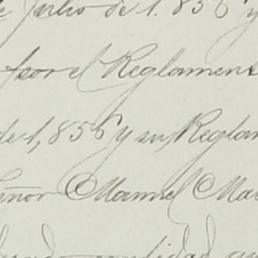 de Julio de 1.856 y
por el Reglamen
de 1,856 y su Regla
eñor Manuel Ma